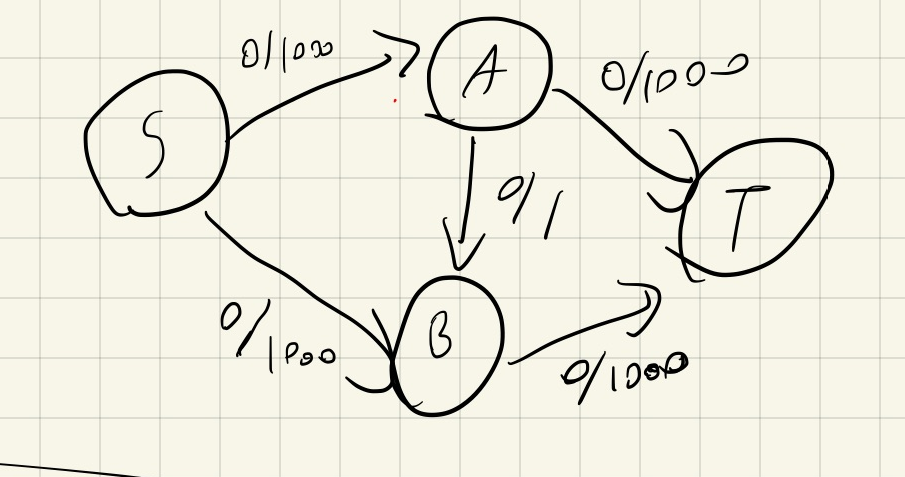 0/1000
A
0/1000
S
T
0/1
0/1000
B
0/1000